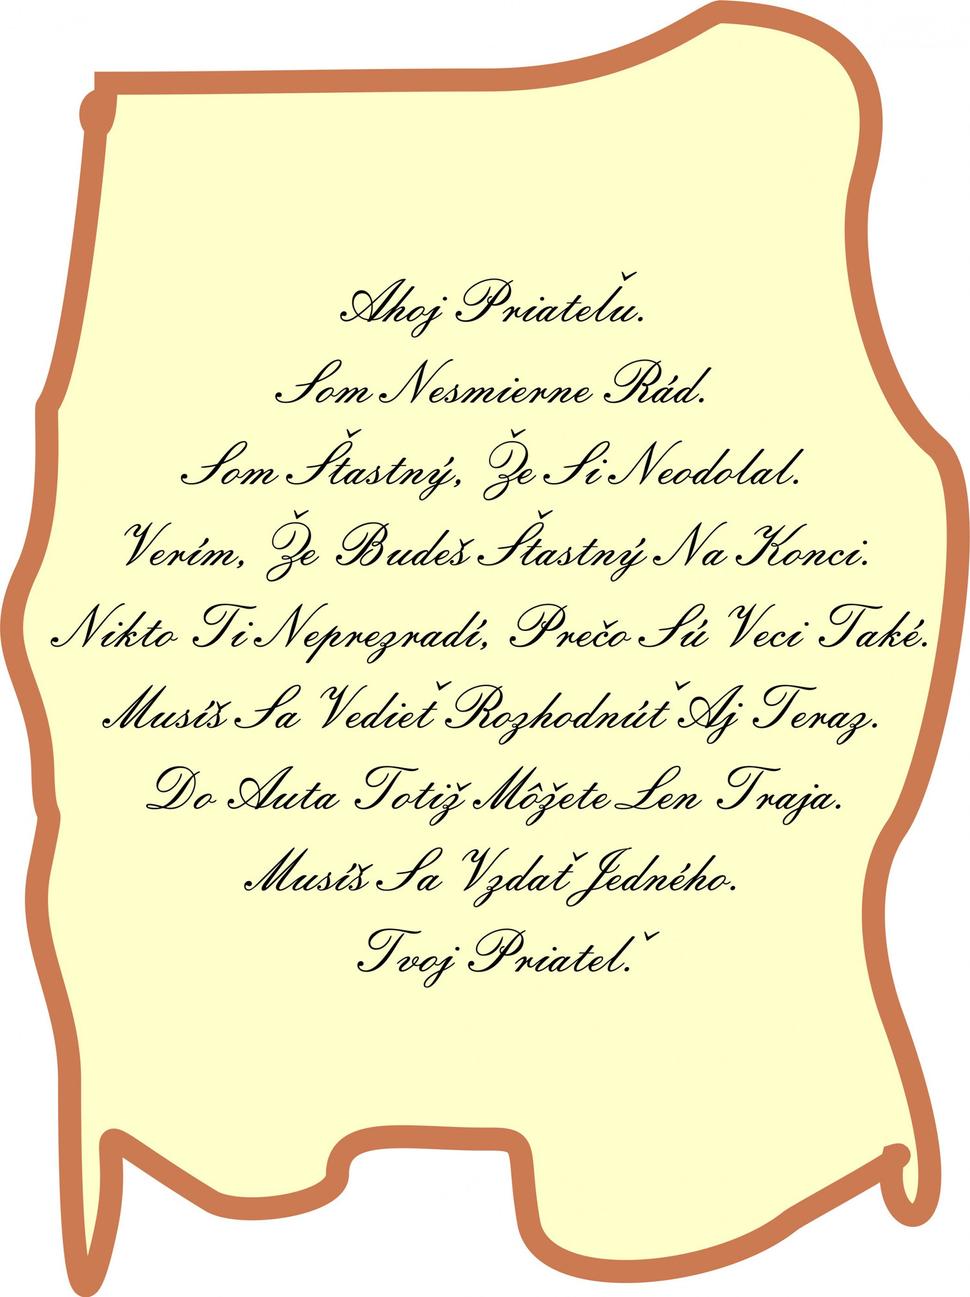 Ahoj Priateľu.
Som Nesmierne Rád.
Som Šťastný, Že Si Neodolal.
Verím, Že Budeš Šťastný Na Konci.
Nikto Ti Neprezradí, Prečo Sú Veci Také.
Musíš Sa Vedieť Rozhodnúť Aj Teraz.
Do Auta Totiž Môžete Len Traja.
Musíš Sa Vzdať Jedného.
Tvoj Priateľ.